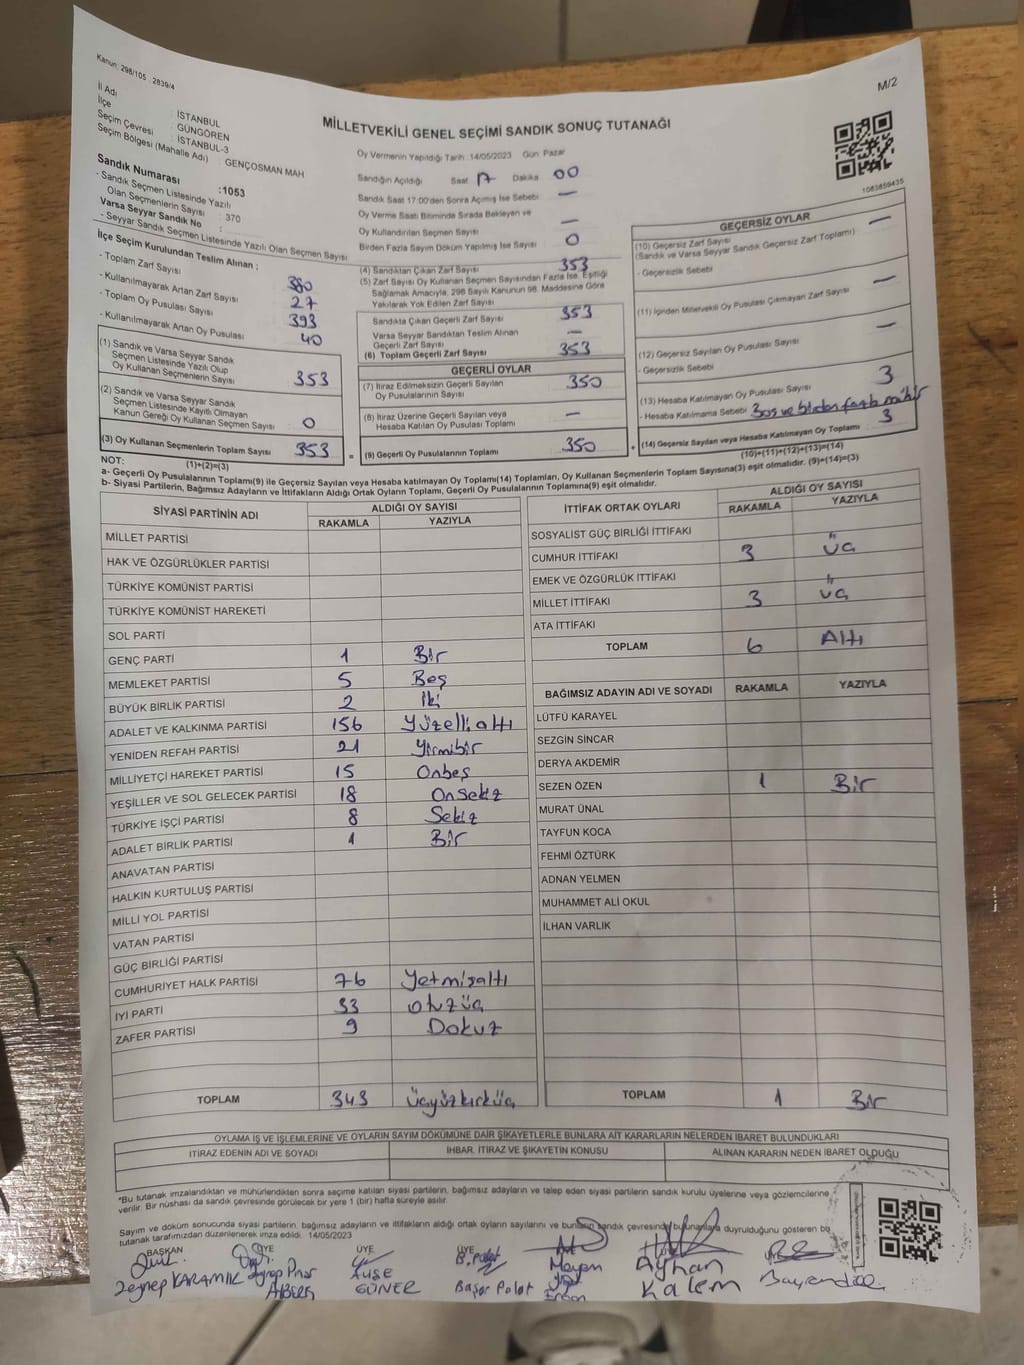 Kanun: 298/105 2839/4
M/2
İl Adı : İSTANBUL
İlçe : GÜNGÖREN
Seçim Çevresi : İSTANBUL-3
Seçim Bölgesi (Mahalle Adı) : GENÇOSMAN MAH
MİLLETVEKİLİ GENEL SEÇİMİ SANDIK SONUÇ TUTANAĞI
Oy Vermenin Yapıldığı Tarih :14/05/2023 Gün Pazar
Sandığın Açıldığı Saat 17 Dakika 00
Sandık Saat 17:00'den Sonra Açımış İse Sebebi —
Oy Verme Saati Bitiminde Sırada Bekleyen ve
Oy Kullandırılan Seçmen Sayısı —
Birden Fazla Sayım Döküm Yapılmış İse Sayısı 0
1083859435
Sandık Numarası :1053
- Sandık Seçmen Listesinde Yazılı
Olan Seçmenlerin Sayısı : 370
Varsa Seyyar Sandık No :
- Seyyar Sandık Seçmen Listesinde Yazılı Olan Seçmen Sayısı
İlçe Seçim Kurulundan Teslim Alınan ;
- Toplam Zarf Sayısı 380
- Kullanılmayarak Artan Zarf Sayısı 27
- Toplam Oy Pusulası Sayısı 393
- Kullanılmayarak Artan Oy Pusulası 40
(1) Sandık ve Varsa Seyyar Sandık
Seçmen Listesinde Yazılı Olup
Oy Kullanan Seçmenlerin Sayısı 353
(2) Sandık ve Varsa Seyyar Sandık
Seçmen Listesinde Kayıtlı Olmayan
Kanun Gereği Oy Kullanan Seçmen Sayısı 0
(3) Oy Kullanan Seçmenlerin Toplam Sayısı 353
(1)+(2)=(3)
(4) Sandıktan Çıkan Zarf Sayısı 353
(5) Zarf Sayısı Oy Kullanan Seçmen Sayısından Fazla İse, Eşitliği
Sağlamak Amacıyla, 298 Sayılı Kanunun 98. Maddesine Göre
Yakılarak Yok Edilen Zarf Sayısı
Sandıkta Çıkan Geçerli Zarf Sayısı 353
Varsa Seyyar Sandıktan Teslim Alınan
Geçerli Zarf Sayısı —
(6) Toplam Geçerli Zarf Sayısı 353
GEÇERLİ OYLAR
(7) İtiraz Edilmeksizin Geçerli Sayılan
Oy Pusulalarının Sayısı 350
(8) İtiraz Üzerine Geçerli Sayılan veya
Hesaba Katılan Oy Pusulası Toplamı —
= (9) Geçerli Oy Pusulalarının Toplamı 350
GEÇERSİZ OYLAR
(10) Geçersiz Zarf Sayısı —
(Sandık ve Varsa Seyyar Sandık Geçersiz Zarf Toplamı)
- Geçersizlik Sebebi
(11) İçinden Milletvekili Oy Pusulası Çıkmayan Zarf Sayısı —
(12) Geçersiz Sayılan Oy Pusulası Sayısı —
- Geçersizlik Sebebi
(13) Hesaba Katılmayan Oy Pusulası Sayısı 3
- Hesaba Katılmama Sebebi Boş ve birden fazla mühür
+ (14) Geçersiz Sayılan veya Hesaba Katılmayan Oy Toplamı 3
(10)+(11)+(12)+(13)=(14)
NOT:
a- Geçerli Oy Pusulalarının Toplamı(9) ile Geçersiz Sayılan veya Hesaba katılmayan Oy Toplamı(14) Toplamları, Oy Kullanan Seçmenlerin Toplam Sayısına(3) eşit olmalıdır. (9)+(14)=(3)
b- Siyasi Partilerin, Bağımsız Adayların ve İttifakların Aldığı Ortak Oyların Toplamı, Geçerli Oy Pusulalarının Toplamına(9) eşit olmalıdır.
SİYASİ PARTİNİN ADI ALDIĞI OY SAYISI
RAKAMLA YAZIYLA
MİLLET PARTİSİ
HAK VE ÖZGÜRLÜKLER PARTİSİ
TÜRKİYE KOMÜNİST PARTİSİ
TÜRKİYE KOMÜNİST HAREKETİ
SOL PARTİ
GENÇ PARTİ 1 Bir
MEMLEKET PARTİSİ 5 Beş
BÜYÜK BİRLİK PARTİSİ 2 İki
ADALET VE KALKINMA PARTİSİ 156 Yüzellialtı
YENİDEN REFAH PARTİSİ 21 Yirmibir
MİLLİYETÇİ HAREKET PARTİSİ 15 Onbeş
YEŞİLLER VE SOL GELECEK PARTİSİ 18 Onsekiz
TÜRKİYE İŞÇİ PARTİSİ 8 Sekiz
ADALET BİRLİK PARTİSİ 1 Bir
ANAVATAN PARTİSİ
HALKIN KURTULUŞ PARTİSİ
MİLLİ YOL PARTİSİ
VATAN PARTİSİ
GÜÇ BİRLİĞİ PARTİSİ
CUMHURİYET HALK PARTİSİ 76 Yetmişaltı
İYİ PARTİ 33 otuzüç
ZAFER PARTİSİ 9 Dokuz
TOPLAM 343 üçyüzkırküç
İTTİFAK ORTAK OYLARI ALDIĞI OY SAYISI
RAKAMLA YAZIYLA
SOSYALİST GÜÇ BİRLİĞİ İTTİFAKI
CUMHUR İTTİFAKI 3 üç
EMEK VE ÖZGÜRLÜK İTTİFAKI
MİLLET İTTİFAKI 3 üç
ATA İTTİFAKI
TOPLAM 6 Altı
BAĞIMSIZ ADAYIN ADI VE SOYADI RAKAMLA YAZIYLA
LÜTFÜ KARAYEL
SEZGİN SİNCAR
DERYA AKDEMİR
SEZEN ÖZEN 1 Bir
MURAT ÜNAL
TAYFUN KOCA
FEHMİ ÖZTÜRK
ADNAN YELMEN
MUHAMMET ALİ OKUL
İLHAN VARLIK
TOPLAM 1 Bir
OYLAMA İŞ VE İŞLEMLERİNE VE OYLARIN SAYIM DÖKÜMÜNE DAİR ŞİKAYETLERLE BUNLARA AİT KARARLARIN NELERDEN İBARET BULUNDUKLARI
İTİRAZ EDENİN ADI VE SOYADI İHBAR, İTİRAZ VE ŞİKAYETİN KONUSU ALINAN KARARIN NEDEN İBARET OLDUĞU
*Bu tutanak imzalandıktan ve mühürlendikten sonra seçime katılan siyasi partilerin, bağımsız adayların ve talep eden siyasi partilerin sandık kurulu üyelerine veya gözlemcilerine
verilir. Bir nüshası da sandık çevresinde görülecek bir yere 1 (bir) hafta süreyle asılır.
Sayım ve döküm sonucunda siyasi partilerin, bağımsız adayların ve ittifakların aldığı ortak oyların sayılarını ve bunların sandık çevresinde bulunanlara duyrulduğunu gösteren bu
tutanak tarafımızdan düzenlenerek imza edildi. 14/05/2023
BAŞKAN ÜYE ÜYE ÜYE
Zeynep KARAMIK
Zeynep Pınar
AYŞE GÜNER
B.Polat
Başar Polat
Ayhan Kalem